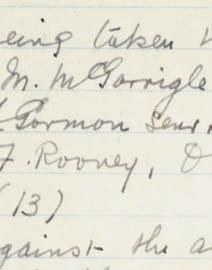 eing taken
M. McGarrigle
Gormon Senr.
F. Rooney,
(13)
gainst the a